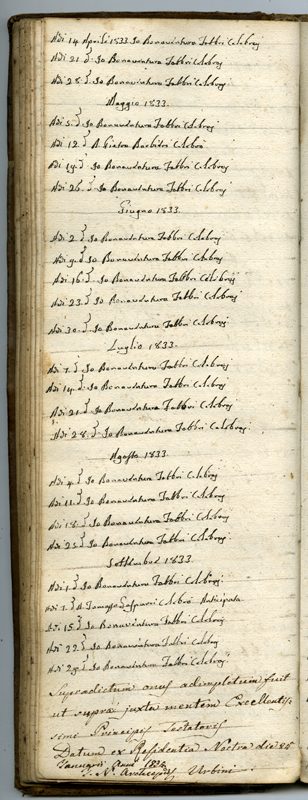 Adi 14 Aprile 1833. Io Bonaventura Fabbri Celebraj
Adi 21 d.º Io Bonaventura Fabbri Celebraj
Adi 28 d.º Io Bonaventura Fabbri Celebraj
Maggio 1833.
Adi 5 d.º Io Bonaventura Fabbri Celebraj
Adi 12 d.º D. Pietro Barbadri Celebrò
Adi 19 d.º Io Bonaventura Fabbri Celebraj
Adi 26 d.º Io Bonaventura Fabbri Celebraj
Giugno 1833.
Adi 2 d.º Io Bonaventura Fabbri Celebraj
Adi 9 d.º Io Bonaventura Fabbri Celebraj
Adi 16 d.º Io Bonaventura Fabbri Celebraj
Adi 23 d.º Io Bonaventura Fabbri Celebraj
Adi 30 d.º Io Bonaventura Fabbri Celebraj
Luglio 1833.
Adi 7 d.º Io Bonaventura Fabbri Celebraj
Adi 14 d.º Io Bonaventura Fabbri Celebraj
Adi 21 d.º Io Bonaventura Fabbri Celebraj
Adi 28 d.º Io Bonaventura Fabbri Celebraj
Agosto 1833.
Adi 4 d.º Io Bonaventura Fabbri Celebraj
Adi 11 d.º Io Bonaventura Fabbri Celebraj
Adi 18 d.º Io Bonaventura Fabbri Celebraj
Adi 25 d.º Io Bonaventura Fabbri Celebraj
Settembre 1833.
Adi 1 d.º Io Bonaventura Fabbri Celebraj
Adi 7 d.º D. Tomasso Gasparri Celebrò Anticipata
Adi 15 d.º Io Bonaventura Fabbri Celebraj
Adi 22 d.º Io Bonaventura Fabbri Celebraj
Adi 29 d.º Io Bonaventura Fabbri Celebraj
Supradictum onus adimpletum fuit
ut supra juxta mentem Excellentis-
simi Principis Testatoris
Datum ex Residentia Nostra die 25
Januarii Anni 1834
N. Archiepus Urbini.